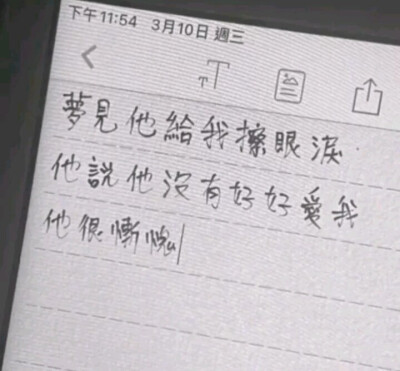 下午11:54 3月10日 週三
TT
夢見他給我擦眼淚
他說他沒有好好愛我
他很慚愧